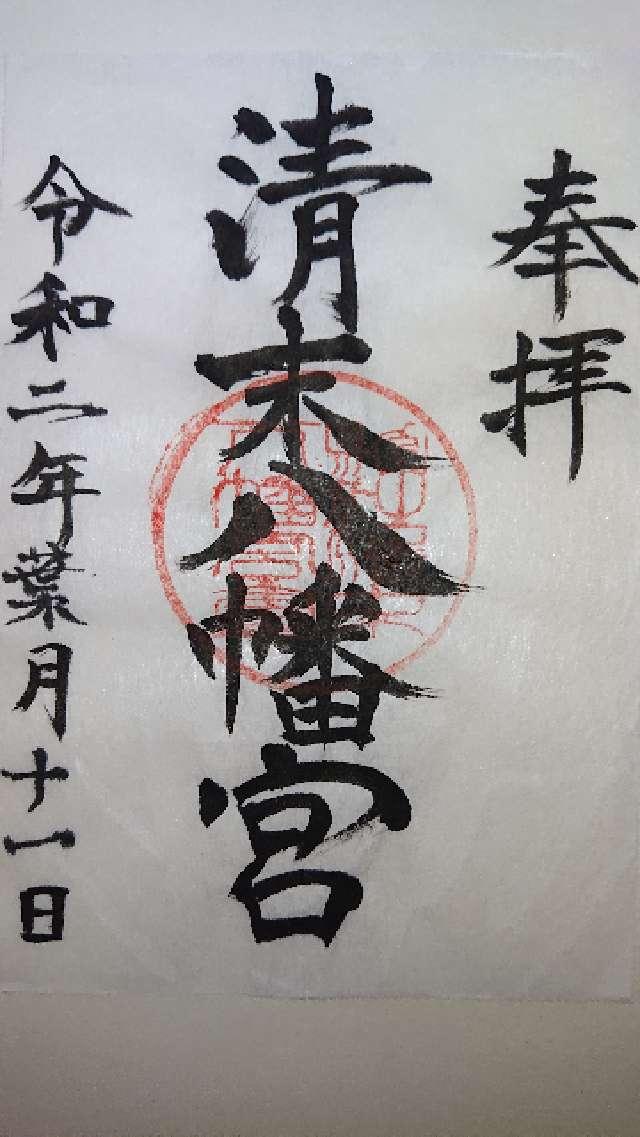 奉拝
清末八幡宮
令和二年葉月十一日